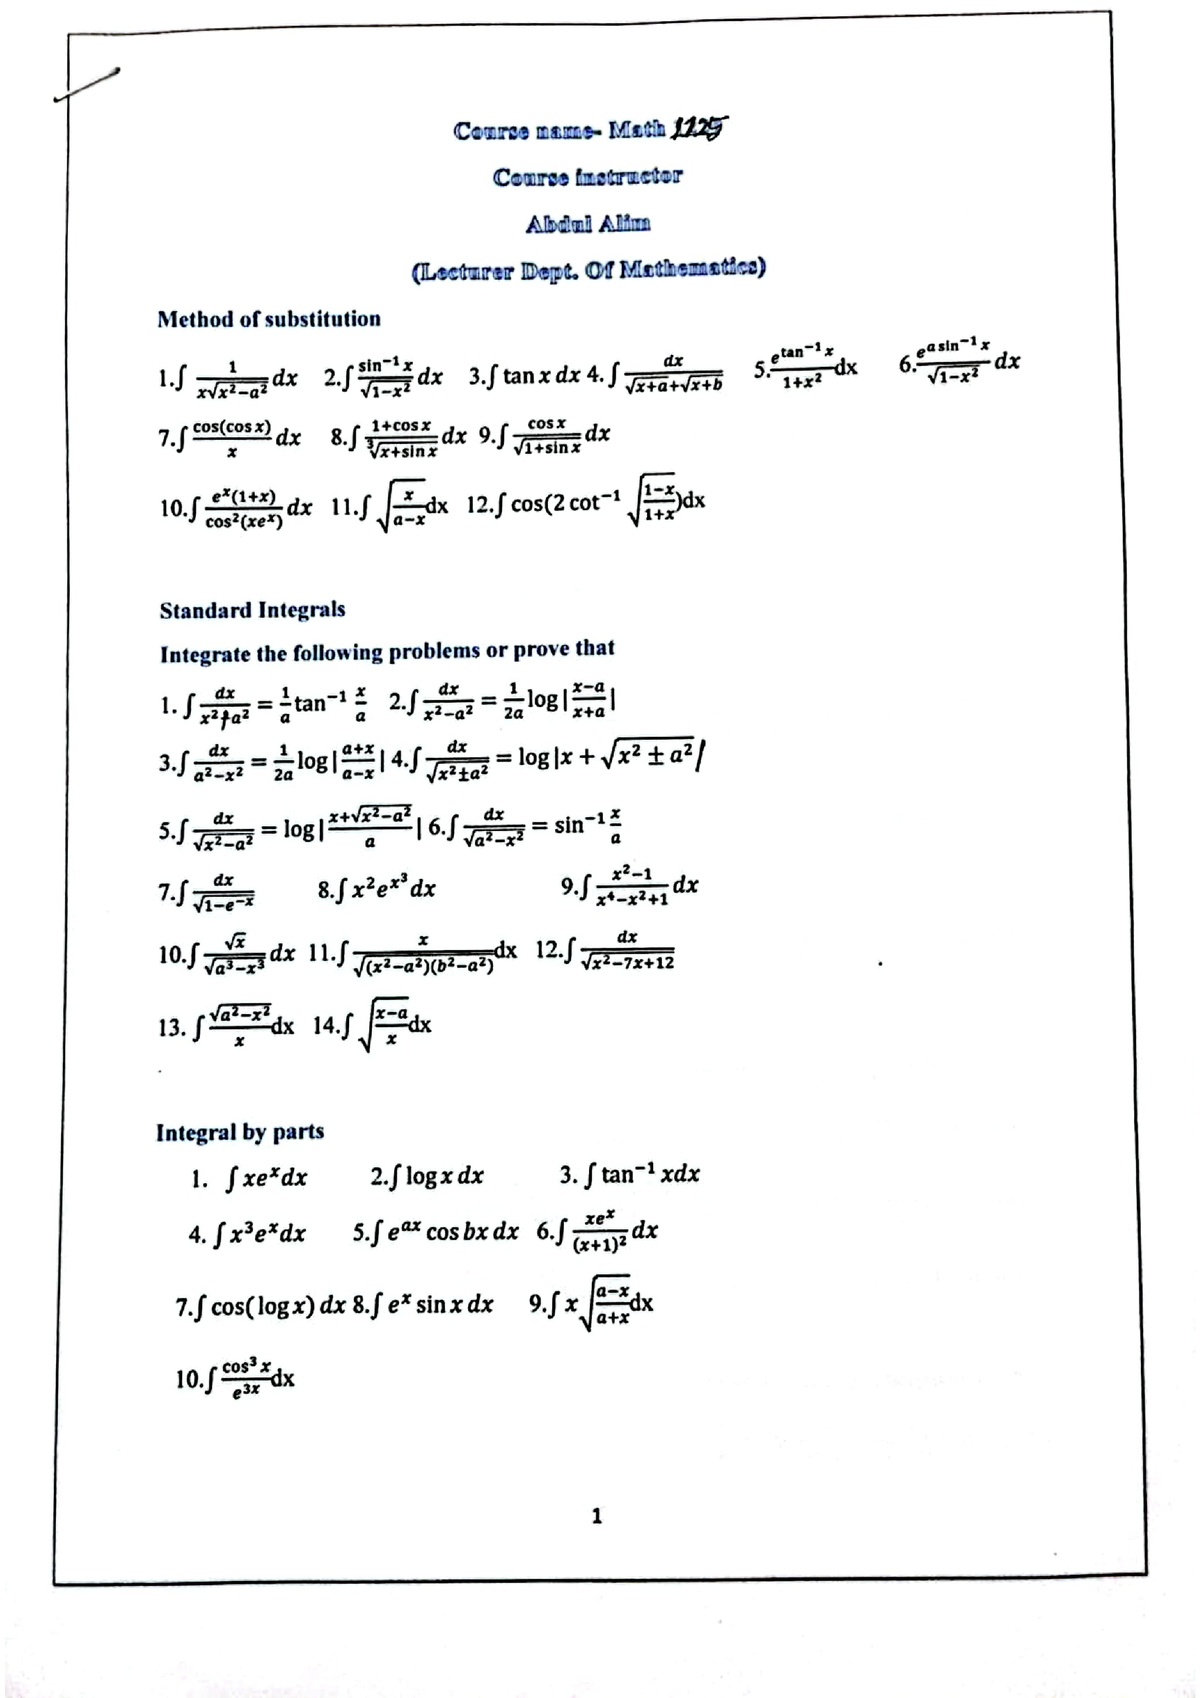 Course name- Math 1125
Course instructor
Abdul Alim
(Lecturer Dept. Of Mathematics)
Method of substitution
1.∫ 1/(x√(x²−a²)) dx 2.∫ sin⁻¹x/√(1−x²) dx 3.∫ tan x dx 4.∫ dx/(√(x+a)+√(x+b)) 5. e^(tan⁻¹x)/(1+x²) dx 6. e^(a sin⁻¹x)/√(1−x²) dx
7.∫ cos(cos x)/x dx 8.∫ (1+cos x)/∛(x+sin x) dx 9.∫ cos x/√(1+sin x) dx
10.∫ eˣ(1+x)/cos²(xeˣ) dx 11.∫ √(x/(a−x)) dx 12.∫ cos(2 cot⁻¹ √((1−x)/(1+x)))dx
Standard Integrals
Integrate the following problems or prove that
1. ∫ dx/(x²+a²) = 1/a tan⁻¹ x/a 2.∫ dx/(x²−a²) = 1/2a log|(x−a)/(x+a)|
3.∫ dx/(a²−x²) = 1/2a log|(a+x)/(a−x)| 4.∫ dx/√(x²±a²) = log|x + √(x² ± a²)|
5.∫ dx/√(x²−a²) = log|(x+√(x²−a²))/a| 6.∫ dx/√(a²−x²) = sin⁻¹ x/a
7.∫ dx/√(1−e⁻ˣ) 8.∫ x²e^(x³) dx 9.∫ (x²−1)/(x⁴−x²+1) dx
10.∫ √x/√(a³−x³) dx 11.∫ x/√((x²−a²)(b²−a²)) dx 12.∫ dx/√(x²−7x+12)
13. ∫ √(a²−x²)/x dx 14.∫ √((x−a)/x) dx
Integral by parts
1. ∫ xeˣdx 2.∫ log x dx 3. ∫ tan⁻¹ xdx
4. ∫ x³eˣdx 5.∫ eᵃˣ cos bx dx 6.∫ xeˣ/(x+1)² dx
7.∫ cos(log x) dx 8.∫ eˣ sin x dx 9.∫ x √((a−x)/(a+x)) dx
10.∫ cos³ x/e³ˣ dx
1